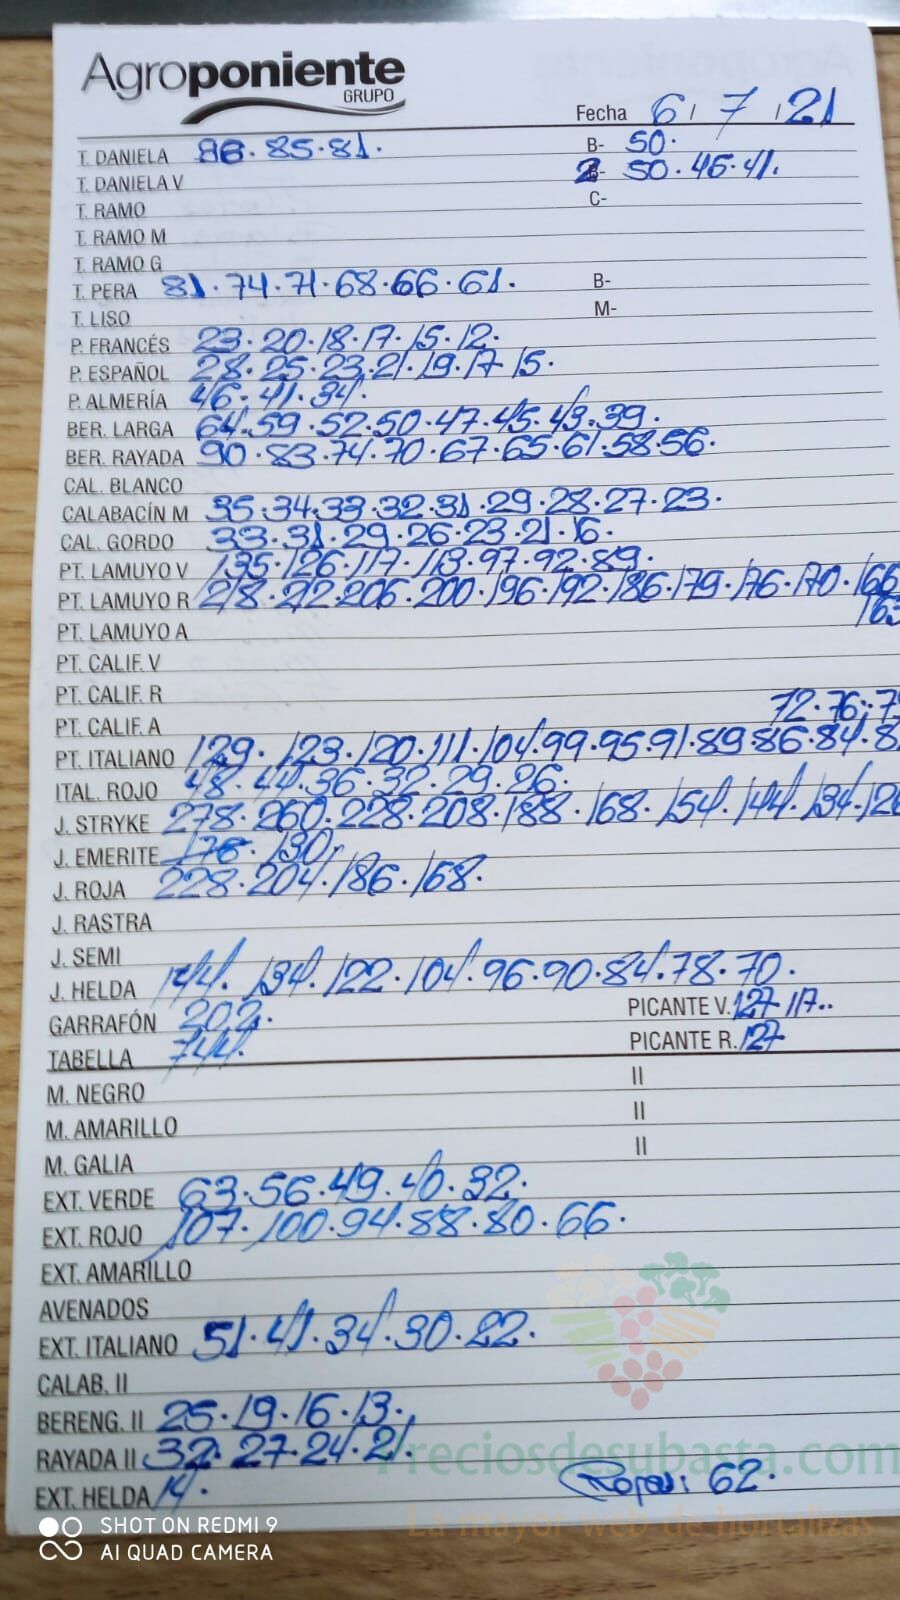 Agroponiente
GRUPO
Fecha 6 / 7 / 21
T. DANIELA 88. 85. 81. B- 50.
T. DANIELA V 2 50. 46. 41.
T. RAMO C-
T. RAMO M
T. RAMO G
T. PERA 81. 74. 71. 68. 66. 61. B-
T. LISO M-
P. FRANCÉS 23. 20. 18. 17. 15. 12.
P. ESPAÑOL 28. 25. 23. 21. 19. 17 15.
P. ALMERÍA 46. 41. 34.
BER. LARGA 64. 59. 52. 50. 47. 45. 43. 39.
BER. RAYADA 90. 83. 74. 70. 67. 65. 61. 58. 56.
CAL. BLANCO
CALABACÍN M 35. 34. 33. 32. 31. 29. 28. 27. 23.
CAL. GORDO 33. 31. 29. 26. 23. 21. 16.
PT. LAMUYO V 135. 126. 117. 113. 97. 92. 89.
PT. LAMUYO R 218. 212. 206. 200. 196. 192. 186. 179. 176. 170. 166
163
PT. LAMUYO A
PT. CALIF. V
PT. CALIF. R
72. 76.
PT. CALIF. A
PT. ITALIANO 129. 123. 120. 111. 104. 99. 95. 91. 89. 86. 84.
ITAL. ROJO 48. 44. 36. 32. 29. 26.
J. STRYKE 278. 260. 228. 208. 188. 168. 154. 144. 134.
J. EMERITE 176. 130.
J. ROJA 228. 204. 186. 168.
J. RASTRA
J. SEMI
J. HELDA 144. 134. 122. 104. 96. 90. 84. 78. 70.
GARRAFÓN 202. PICANTE V. 127. 117..
TABELLA 744. PICANTE R. 127
M. NEGRO II
M. AMARILLO II
M. GALIA II
EXT. VERDE 63. 56. 49. 40. 32.
EXT. ROJO 107. 100. 94. 88. 80. 66.
EXT. AMARILLO
AVENADOS
EXT. ITALIANO 51. 41. 34. 30. 22.
CALAB. II
BERENG. II 25. 19. 16. 13.
RAYADA II 32. 27. 24. 21.
Preciosdesubasta.com
EXT. HELDA 14. 62.
La mayor web de hortalizas
SHOT ON REDMI 9
AI QUAD CAMERA